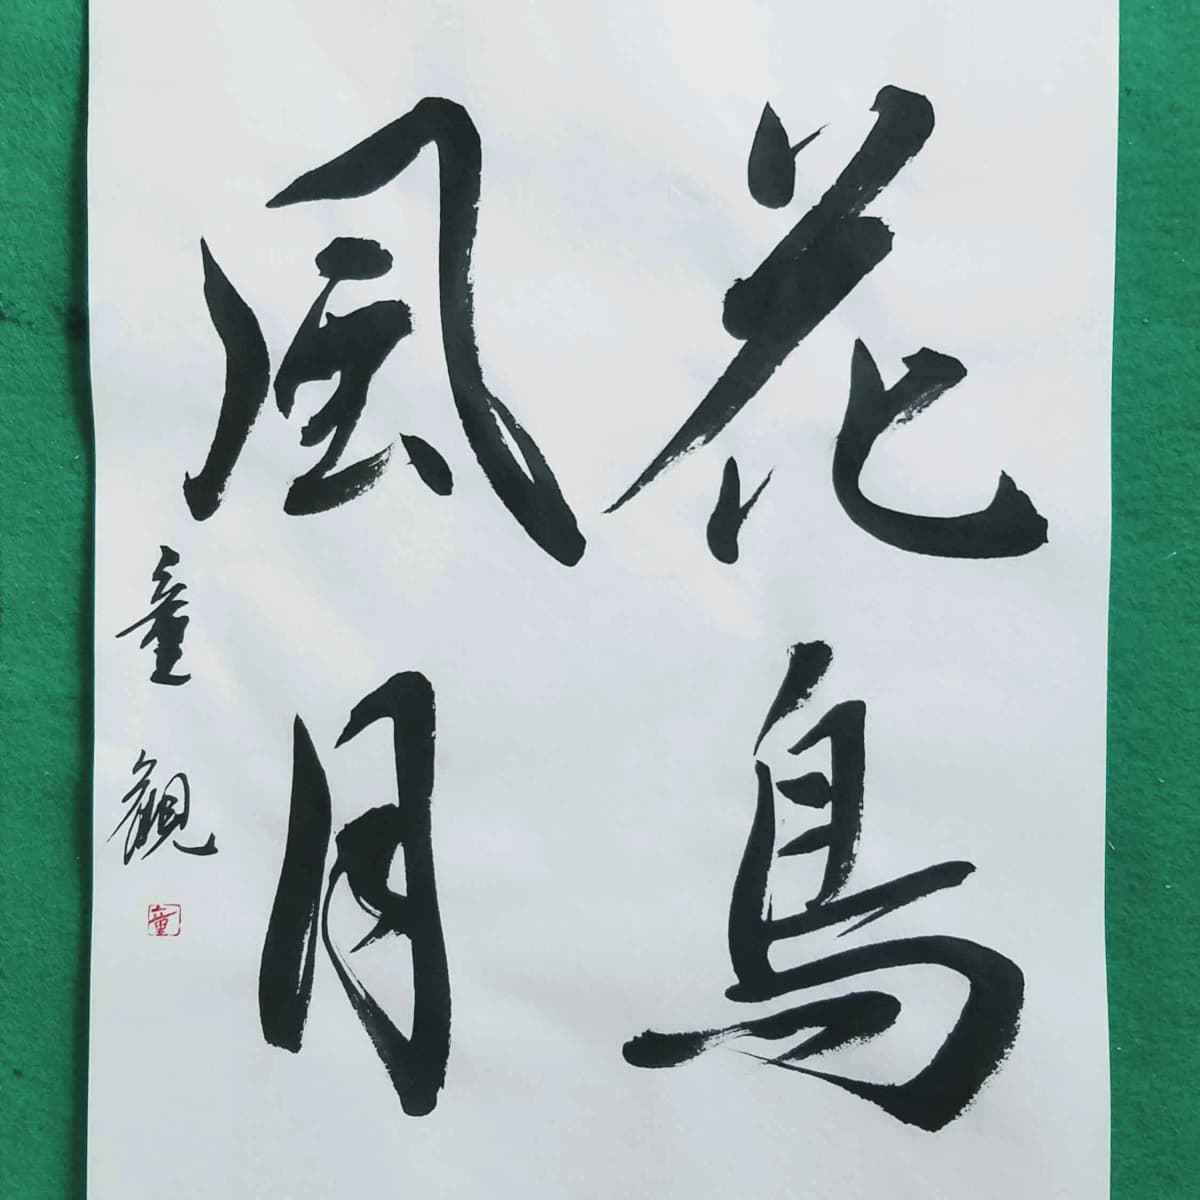 花鳥
風月
童観
童